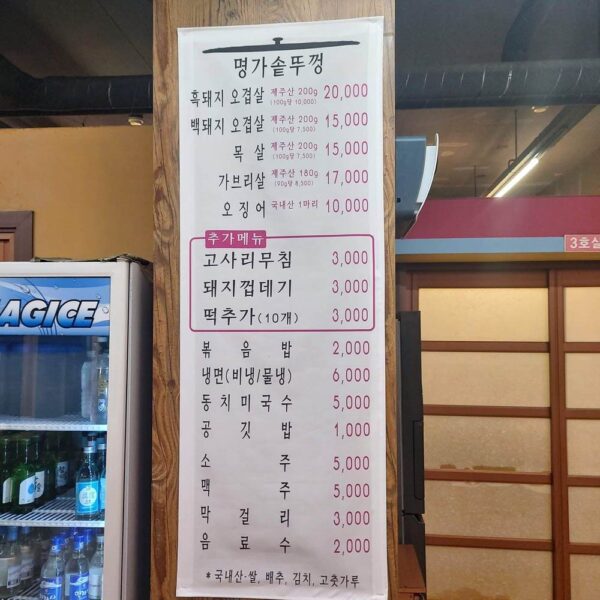 명가솥뚜껑
흑돼지 오겹살 제주산 200g (100g당 10,000) 20,000
백돼지 오겹살 제주산 200g (100g당 7,500) 15,000
목 살 제주산 200g (100g당 7,500) 15,000
가브리살 제주산 180g (90g당 8,500) 17,000
오징어 국내산 1마리 10,000
추가메뉴
고사리무침 3,000
돼지껍데기 3,000
떡추가(10개) 3,000
볶음밥 2,000
냉면(비냉/물냉) 6,000
동치미국수 5,000
공깃밥 1,000
소주 5,000
맥주 5,000
막걸리 3,000
음료수 2,000
*국내산-쌀, 배추, 김치, 고춧가루
AGICE
3호실